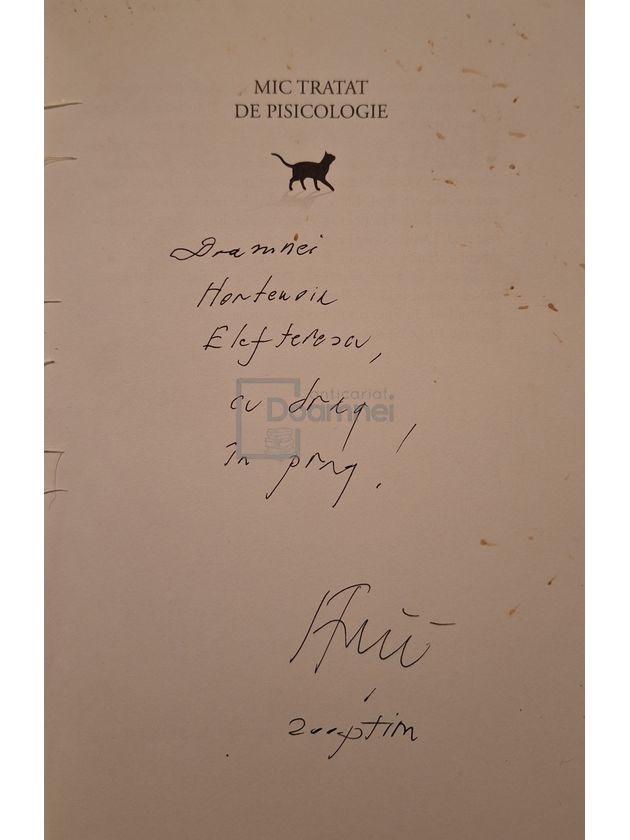 MIC TRATAT
DE PISICOLOGIE
Doamnei
Hortensia
Elefterescu,
cu drag
în prag!
anticariat
Doamnei